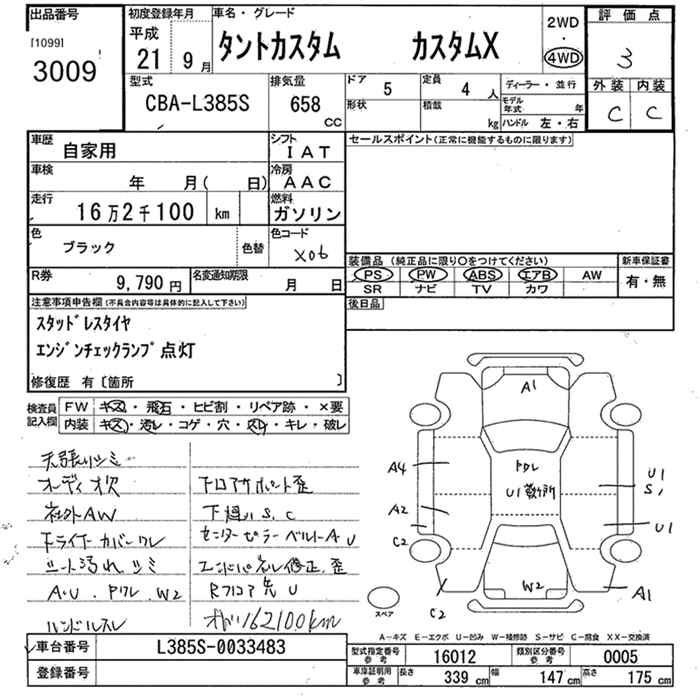 出品番号
[1099]
3009
初度登録年月
平成
21 9月
車名・グレード
タントカスタム カスタムX
2WD
・
4WD
評価点
3
外装 内装
C C
型式
CBA-L385S
排気量
658
cc
ドア 5
形状
定員 4 人
積載 kg
ディーラー・並行
モデル年式 年
ハンドル 左・右
車歴
自家用
シフト
IAT
車検 年 月( 日)
冷房
AAC
走行
16万2千100 km
燃料
ガソリン
色
ブラック
色替
色コード
X06
R券
9,790円
名変通知期限 月 日
セールスポイント(正常に機能するものに限ります)
装備品(純正品に限り○をつけてください)
PS PW ABS エアB AW
SR ナビ TV カワ
新車保証書
有・無
後日品
注意事項申告欄(不具合内容等は具体的に記入して下さい)
スタッドレスタイヤ
エンジンチェックランプ点灯
修復歴 有〔箇所 〕
検査員記入欄
FW キズ・飛石・ヒビ割・リペア跡・×要
内装 キズ・汚レ・コゲ・穴・スレ・キレ・破レ
天張りシミ
オーディオ欠
社外AW
ドライブカバーワレ
シート汚れ、シミ
A・U、Pワレ、W2
ハンドルスレ
下回りS、C
センターピラーベルトAU
エンドパネル修正、歪
Rフロア先U
メーター162100km
A1
トタレ
U1数ヶ所
A4
A2
C2
U1
S1
U1
W2
C2
A1
スペア
A－キズ E－エクボ U－凹み W－補修跡 S－サビ C－腐食 XX－交換済
車台番号
L385S-0033483
登録番号
型式指定番号参考
16012
類別区分番号参考
0005
車庫証明用参考
長さ 339 cm 幅 147 cm 高さ 175 cm